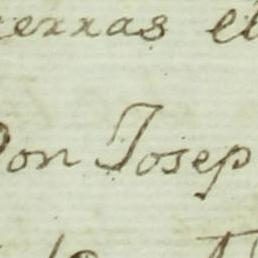 terras el
Don Josep